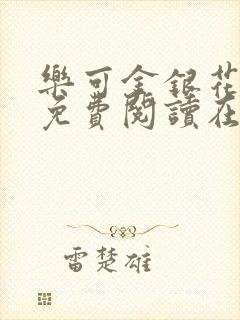 樂可金銀花
免費閱讀在
雷楚雄